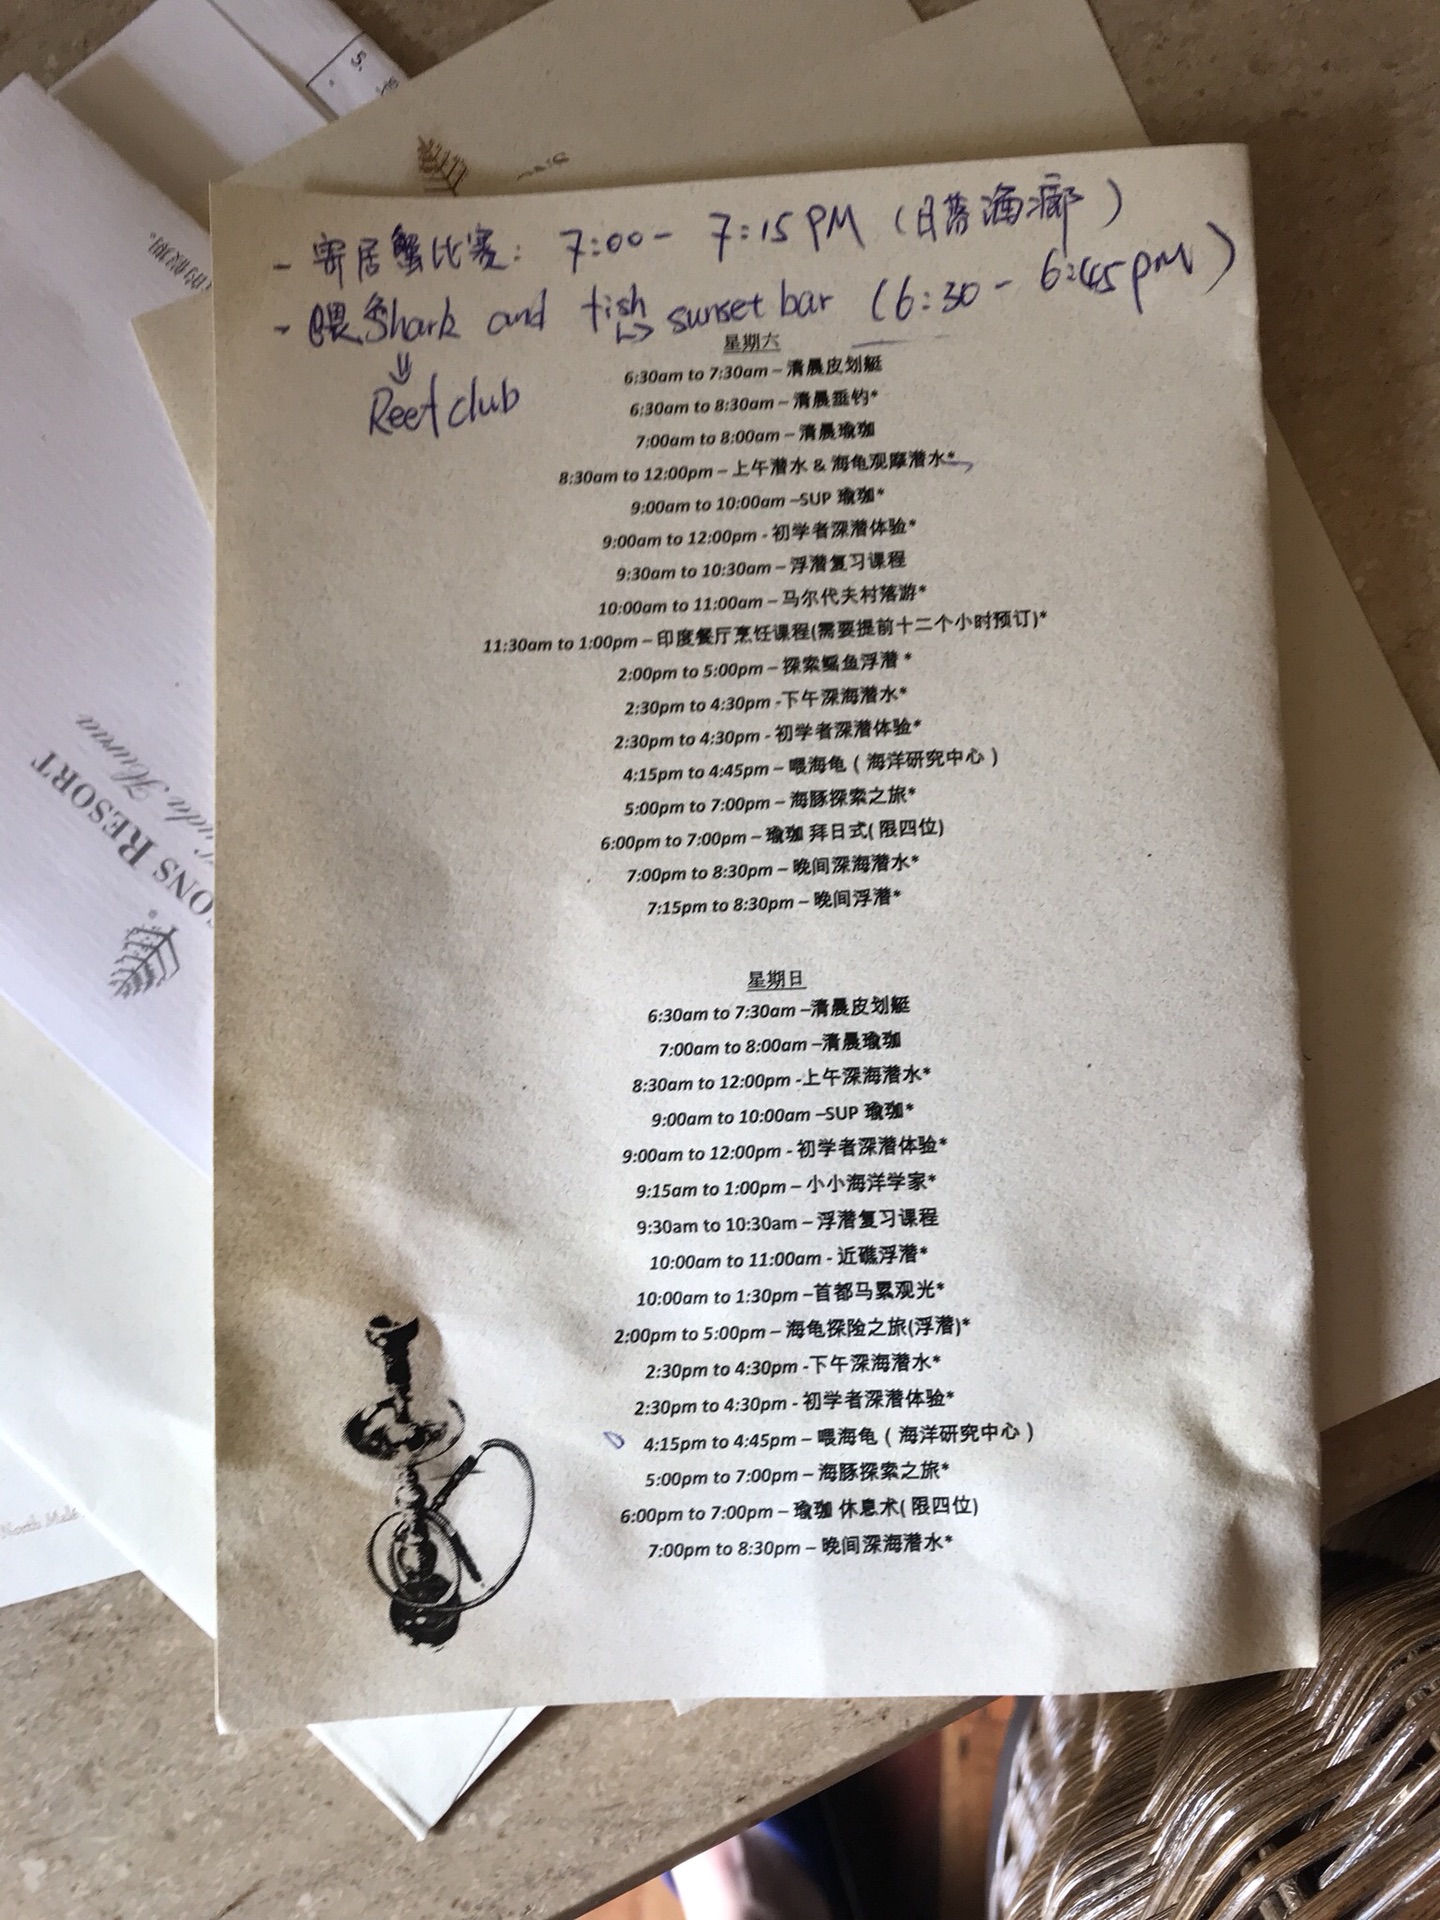 - 寄居蟹比赛: 7:00 - 7:15 PM (日落酒廊)
- 喂鱼 Shark and fish ↳ sunset bar (6:30 - 6:45 pm)
⇓
Reef club
星期六
6:30am to 7:30am – 清晨皮划艇
6:30am to 8:30am – 清晨垂钓*
7:00am to 8:00am – 清晨瑜珈
8:30am to 12:00pm – 上午潜水 & 海龟观摩潜水*
9:00am to 10:00am –SUP 瑜珈*
9:00am to 12:00pm - 初学者深潜体验*
9:30am to 10:30am – 浮潜复习课程
10:00am to 11:00am – 马尔代夫村落游*
11:30am to 1:00pm – 印度餐厅烹饪课程(需要提前十二个小时预订)*
2:00pm to 5:00pm – 探索鳐鱼浮潜 *
2:30pm to 4:30pm -下午深海潜水*
2:30pm to 4:30pm - 初学者深潜体验*
4:15pm to 4:45pm – 喂海龟（海洋研究中心）
5:00pm to 7:00pm – 海豚探索之旅*
6:00pm to 7:00pm – 瑜珈 拜日式( 限四位)
7:00pm to 8:30pm – 晚间深海潜水*
7:15pm to 8:30pm – 晚间浮潜*
星期日
6:30am to 7:30am –清晨皮划艇
7:00am to 8:00am –清晨瑜珈
8:30am to 12:00pm -上午深海潜水*
9:00am to 10:00am –SUP 瑜珈*
9:00am to 12:00pm - 初学者深潜体验*
9:15am to 1:00pm – 小小海洋学家*
9:30am to 10:30am – 浮潜复习课程
10:00am to 11:00am - 近礁浮潜*
10:00am to 1:30pm –首都马累观光*
2:00pm to 5:00pm – 海龟探险之旅(浮潜)*
2:30pm to 4:30pm -下午深海潜水*
2:30pm to 4:30pm - 初学者深潜体验*
4:15pm to 4:45pm – 喂海龟（海洋研究中心）
5:00pm to 7:00pm – 海豚探索之旅*
6:00pm to 7:00pm – 瑜珈 休息术( 限四位)
7:00pm to 8:30pm – 晚间深海潜水*
ONS RESORT
Kuda Huraa
的假期。
North Malé